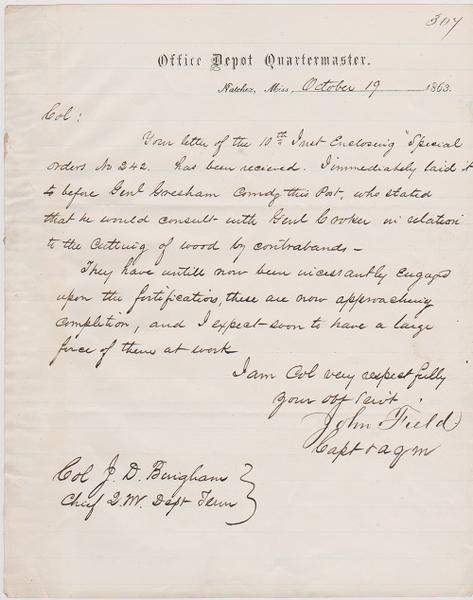 307
Office Depot Quartermaster.
Natchez, Miss, October 19 1863.
Col:
Your letter of the 10th Inst Enclosing "Special
orders No 242. has been recieved. I immediately laid it
before Genl Gresham Comdg this Post, who stated
that he would consult with Genl Crocker in relation
to the cutting of wood by contrabands -
They have untill now been incessantly engaged
upon the fortifications, these are now approaching
completion, and I expect soon to have a large
force of them at work
I am Col very respectfully
Your obt servt
John Field
Capt & aqm
Col J. D. Bingham
Chief Q.M. Dept Tenn